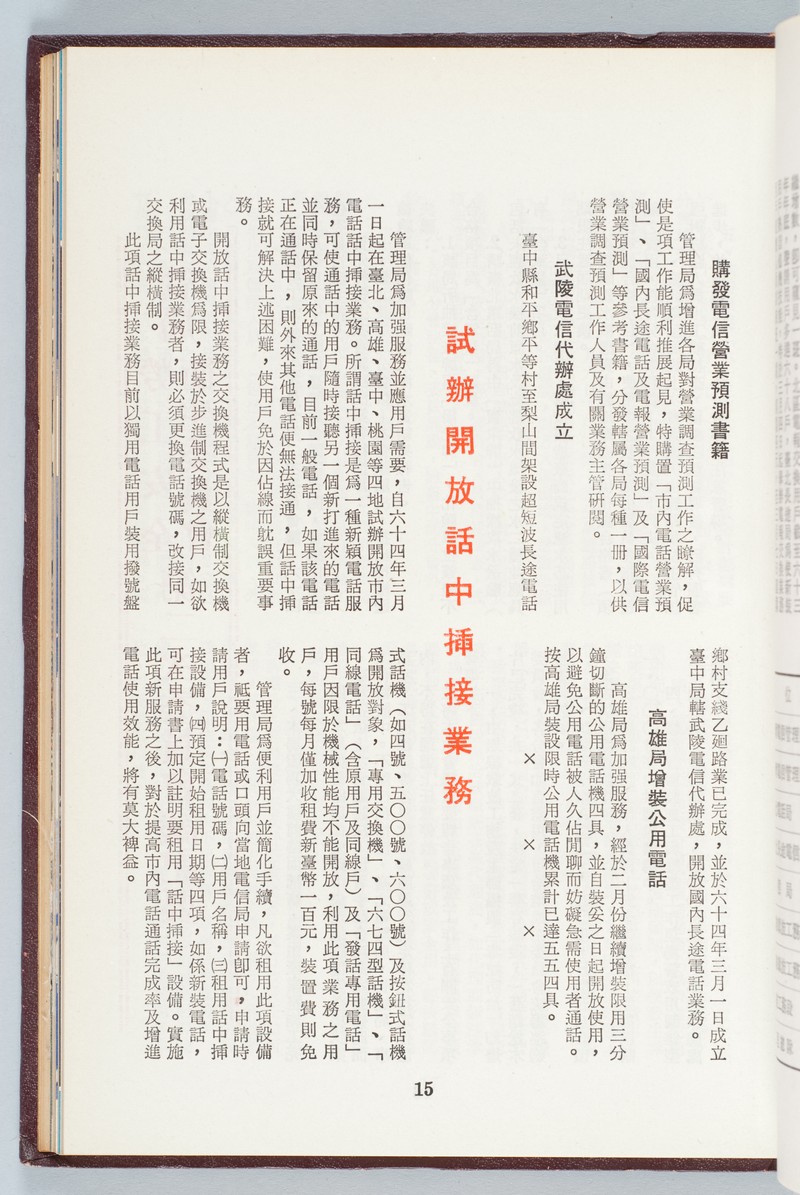 購發電信營業預測書籍
管理局爲增進各局對營業調查預測工作之瞭解，促
使是項工作能順利推展起見，特購置「市內電話營業預
測」、「國內長途電話及電報營業預測」及「國際電信
營業預測」等參考書籍，分發轄屬各局每種一冊，以供
營業調查預測工作人員及有關業務主管研閱。
武陵電信代辦處成立
臺中縣和平鄉平等村至梨山間架設超短波長途電話
鄉村支綫乙廻路業已完成，並於六十四年三月一日成立
臺中局轄武陵電信代辦處，開放國內長途電話業務。
高雄局增裝公用電話
高雄局爲加强服務，經於二月份繼續增裝限用三分
鐘切斷的公用電話機四具，並自裝妥之日起開放使用，
以避免公用電話被人久佔閒聊而妨礙急需使用者通話。
按高雄局裝設限時公用電話機累計已達五五四具。
×　×　×
試辦開放話中挿接業務
管理局爲加强服務並應用戶需要，自六十四年三月
一日起在臺北、高雄、臺中、桃園等四地試辦開放市內
電話話中挿接業務。所謂話中挿接是爲一種新穎電話服
務，可使通話中的用戶隨時接聽另一個新打進來的電話
並同時保留原來的通話，目前一般電話，如果該電話
正在通話中，則外來其他電話便無法接通，但話中挿
接就可解決上述困難，使用戶免於因佔線而躭誤重要事
務。
開放話中挿接業務之交換機程式是以縱橫制交換機
或電子交換機爲限，接裝於步進制交換機之用戶，如欲
利用話中挿接業務者，則必須更換電話號碼，改接同一
交換局之縱橫制。
此項話中挿接業務目前以獨用電話用戶裝用撥號盤
式話機（如四號、五〇〇號、六〇〇號）及按鈕式話機
爲開放對象，「專用交換機」、「六七四型話機」、「
同線電話」（含原用戶及同線戶）及「發話專用電話」
用戶因限於機械性能均不能開放，利用此項業務之用
戶，每號每月僅加收租費新臺幣一百元，裝置費則免
收。
管理局爲便利用戶並簡化手續，凡欲租用此項設備
者，祇要用電話或口頭向當地電信局申請卽可，申請時
請用戶說明：㈠電話號碼，㈡用戶名稱，㈢租用話中挿
接設備，㈣預定開始租用日期等四項，如係新裝電話，
可在申請書上加以註明要租用「話中挿接」設備。實施
此項新服務之後，對於提高市內電話通話完成率及增進
電話使用效能，將有莫大裨益。
15